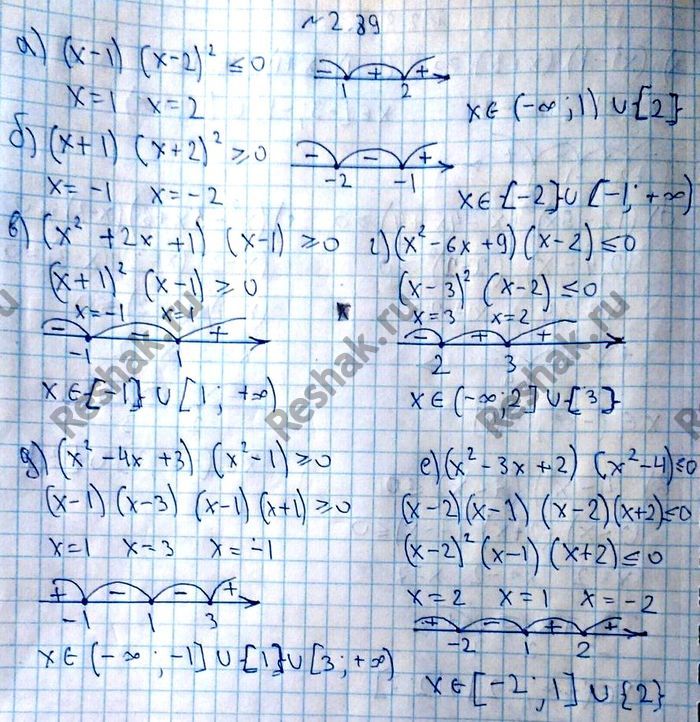 № 2.89
а) (x-1) (x-2)² ≤ 0
x=1 x=2
- + +
1 2
x∈ (-∞; 1) ∪ {2}
б) (x+1) (x+2)² ≥ 0
x=-1 x=-2
- - +
-2 -1
x∈ {-2} ∪ [-1; +∞)
в) (x² + 2x + 1) (x-1) ≥ 0
(x+1)² (x-1) ≥ 0
x=-1 x=1
- - +
-1 1
x∈ {-1} ∪ [1; +∞)
г) (x² - 6x + 9) (x-2) ≤ 0
(x-3)² (x-2) ≤ 0
x=3 x=2
- + +
2 3
x∈ (-∞; 2] ∪ {3}
д) (x² - 4x + 3) (x² - 1) ≥ 0
(x-1) (x-3) (x-1) (x+1) ≥ 0
x=1 x=3 x=-1
+ - - +
-1 1 3
x∈ (-∞; -1] ∪ {1} ∪ [3; +∞)
е) (x² - 3x + 2) (x² - 4) ≤ 0
(x-2) (x-1) (x-2) (x+2) ≤ 0
(x-2)² (x-1) (x+2) ≤ 0
x=2 x=1 x=-2
+ - + +
-2 1 2
x∈ [-2; 1] ∪ {2}
Reshak.ru
Reshak.ru
Reshak.ru
Reshak.ru